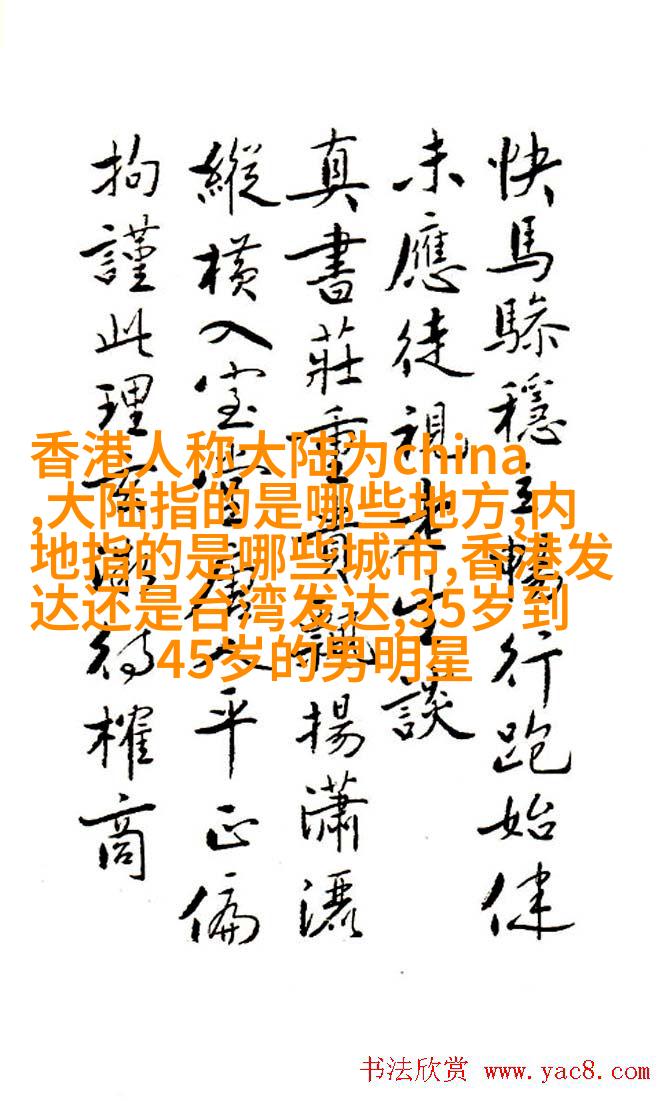 香港人称大陆为china
,大陆指的是哪些地方,内
地指的是哪些城市,香港发
达还是台湾发达,35岁到
45岁的男明星
快馬穩行跑始
未應徒視談
真書莊重貴飄揚瀟灑
縱橫入室平正偏
拘謹此理待榷商
书法欣赏 www.yac8.com